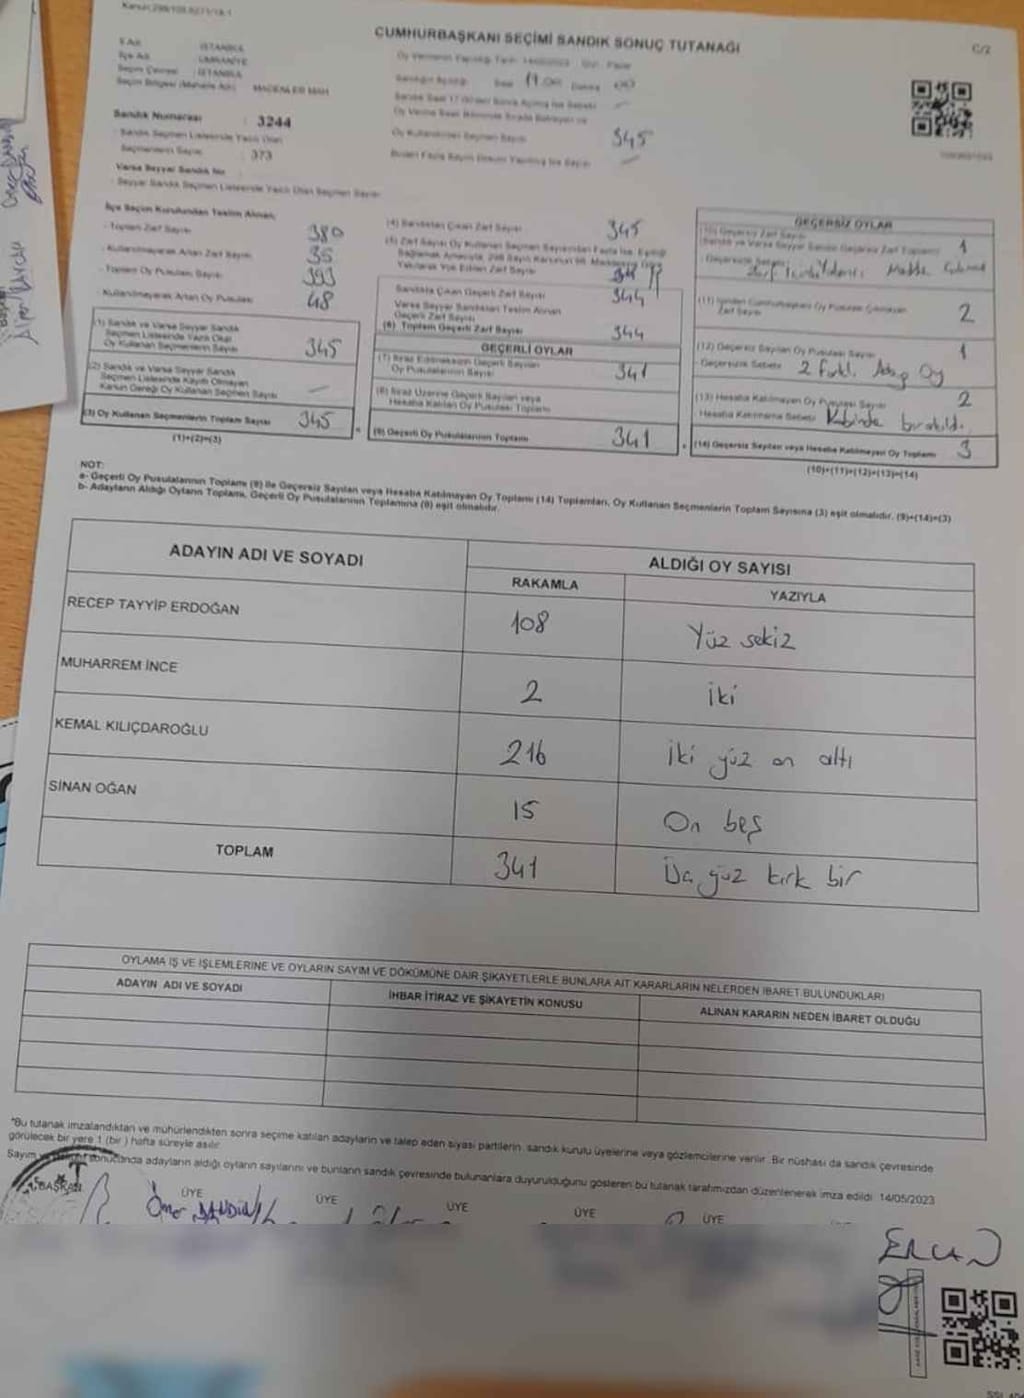 Kanun:298/105.6271/18.1
CUMHURBAŞKANI SEÇİMİ SANDIK SONUÇ TUTANAĞI
C/2
İl Adı : İSTANBUL
İlçe Adı : ÜMRANİYE
Seçim Çevresi : İSTANBUL
Seçim Bölgesi (Mahalle Adı) : MADENLER MAH
Sandık Numarası : 3244
Sandık Seçmen Listesinde Yazılı Olan
Seçmenlerin Sayısı : 373
Varsa Seyyar Sandık No
Seyyar Sandık Seçmen Listesinde Yazılı Olan Seçmen Sayısı
Oy Kullanan Seçmen Sayısı 345
İlçe Seçim Kurulundan Teslim Alınan;
- Toplam Zarf Sayısı 380
- Kullanılmayarak Artan Zarf Sayısı 35
- Toplam Oy Pusulası Sayısı 393
- Kullanılmayarak Artan Oy Pusulası 48
(1) Sandık ve Varsa Seyyar Sandık
Seçmen Listesinde Yazılı Olup
Oy Kullanan Seçmenlerin Sayısı 345
(2) Sandık ve Varsa Seyyar Sandık
Seçmen Listesinde Kayıtlı Olmayan
Kanun Gereği Oy Kullanan Seçmen Sayısı –
(3) Oy Kullanan Seçmenlerin Toplam Sayısı 345
(1)+(2)=(3)
(4) Sandıktan Çıkan Zarf Sayısı 345
(5) Zarf Sayısı Oy Kullanan Seçmen Sayısından Fazla İse, Eşitliği
Sağlamak Amacıyla, 298 Sayılı Kanunun 98. Maddesine Göre
Yakılarak Yok Edilen Zarf Sayısı
Sandıkta Çıkan Geçerli Zarf Sayısı 344
Varsa Seyyar Sandıktan Teslim Alınan
Geçerli Zarf Sayısı
(6) Toplam Geçerli Zarf Sayısı 344
GEÇERLİ OYLAR
(7) İtiraz Edilmeksizin Geçerli Sayılan
Oy Pusulası Sayısı 341
(8) İtiraz Üzerine Geçerli Sayılan veya
Hesaba Katılan Oy Pusulası Toplamı
(9) Geçerli Oy Pusulalarının Toplamı 341
GEÇERSİZ OYLAR
(10) Geçersiz Zarf Sayısı 1
(Sandık ve Varsa Seyyar Sandık Geçersiz Zarf Toplamı)
- Geçersizlik Sebebi
(11) İçinden Cumhurbaşkanı Oy Pusulası Çıkmayan
Zarf Sayısı 2
(12) Geçersiz Sayılan Oy Pusulası Sayısı 1
- Geçersizlik Sebebi 2 farklı Aday Oy
(13) Hesaba Katılmayan Oy Pusulası Sayısı 2
Hesaba Katılmama Sebebi Kabinde bırakıldı.
(14) Geçersiz Sayılan veya Hesaba Katılmayan Oy Toplamı 3
(10)+(11)+(12)+(13)=(14)
NOT:
a- Geçerli Oy Pusulalarının Toplamı (9) ile Geçersiz Sayılan veya Hesaba Katılmayan Oy Toplamı (14) Toplamları, Oy Kullanan Seçmenlerin Toplam Sayısına (3) eşit olmalıdır. (9)+(14)=(3)
b- Adayların Aldığı Oyların Toplamı, Geçerli Oy Pusulalarının Toplamına (9) eşit olmalıdır.
ADAYIN ADI VE SOYADI
ALDIĞI OY SAYISI
RAKAMLA YAZIYLA
RECEP TAYYİP ERDOĞAN 108 Yüz sekiz
MUHARREM İNCE 2 iki
KEMAL KILIÇDAROĞLU 216 iki yüz on altı
SİNAN OĞAN 15 On beş
TOPLAM 341 yüz kırk bir
OYLAMA İŞ VE İŞLEMLERİNE VE OYLARIN SAYIM VE DÖKÜMÜNE DAİR ŞİKAYETLERLE BUNLARA AİT KARARLARIN NELERDEN İBARET BULUNDUKLARI
ADAYIN ADI VE SOYADI
İHBAR İTİRAZ VE ŞİKAYETİN KONUSU
ALINAN KARARIN NEDEN İBARET OLDUĞU
*Bu tutanak imzalandıktan ve mühürlendikten sonra seçime katılan adayların ve talep eden siyasi partilerin sandık kurulu üyelerine veya gözlemcilerine verilir. Bir nüshası da sandık çevresinde
görülecek bir yere 1 (bir) hafta süreyle asılır.
Sayım sonucunda adayların aldığı oyların sayılarını ve bunların sandık çevresinde bulunanlara duyurulduğunu gösteren bu tutanak tarafımızdan düzenlenerek imza edildi. 14/05/2023
BAŞKAN ÜYE ÜYE ÜYE ÜYE ÜYE
Ömer
ERCAN